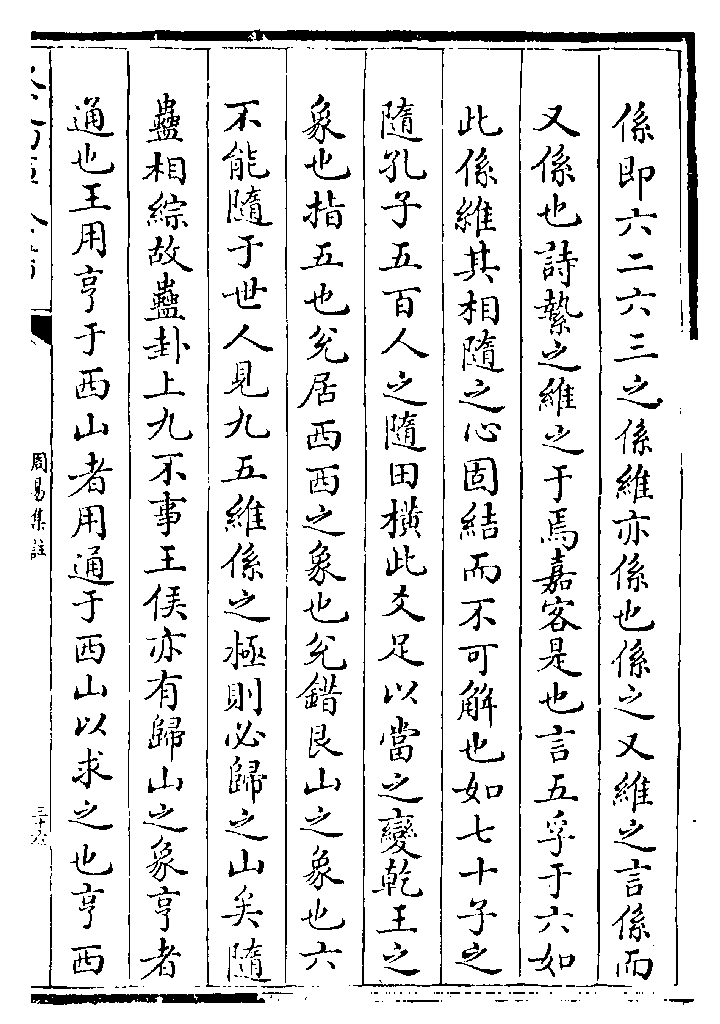 係即六二六三之係維亦係也係之又維之言係而
又係也詩縶之維之于焉嘉客是也言五孚于六如
此係維其相隨之心固結而不可解也如七十子之
隨孔子五百人之隨田橫此爻足以當之變乾王之
象也指五也兌居西西之象也兌錯艮山之象也六
不能隨于世人見九五維係之極則必歸之山矣隨
蠱相綜故蠱卦上九不事王侯亦有歸山之象亨者
通也王用亨于西山者用通于西山以求之也亨西
周易集註